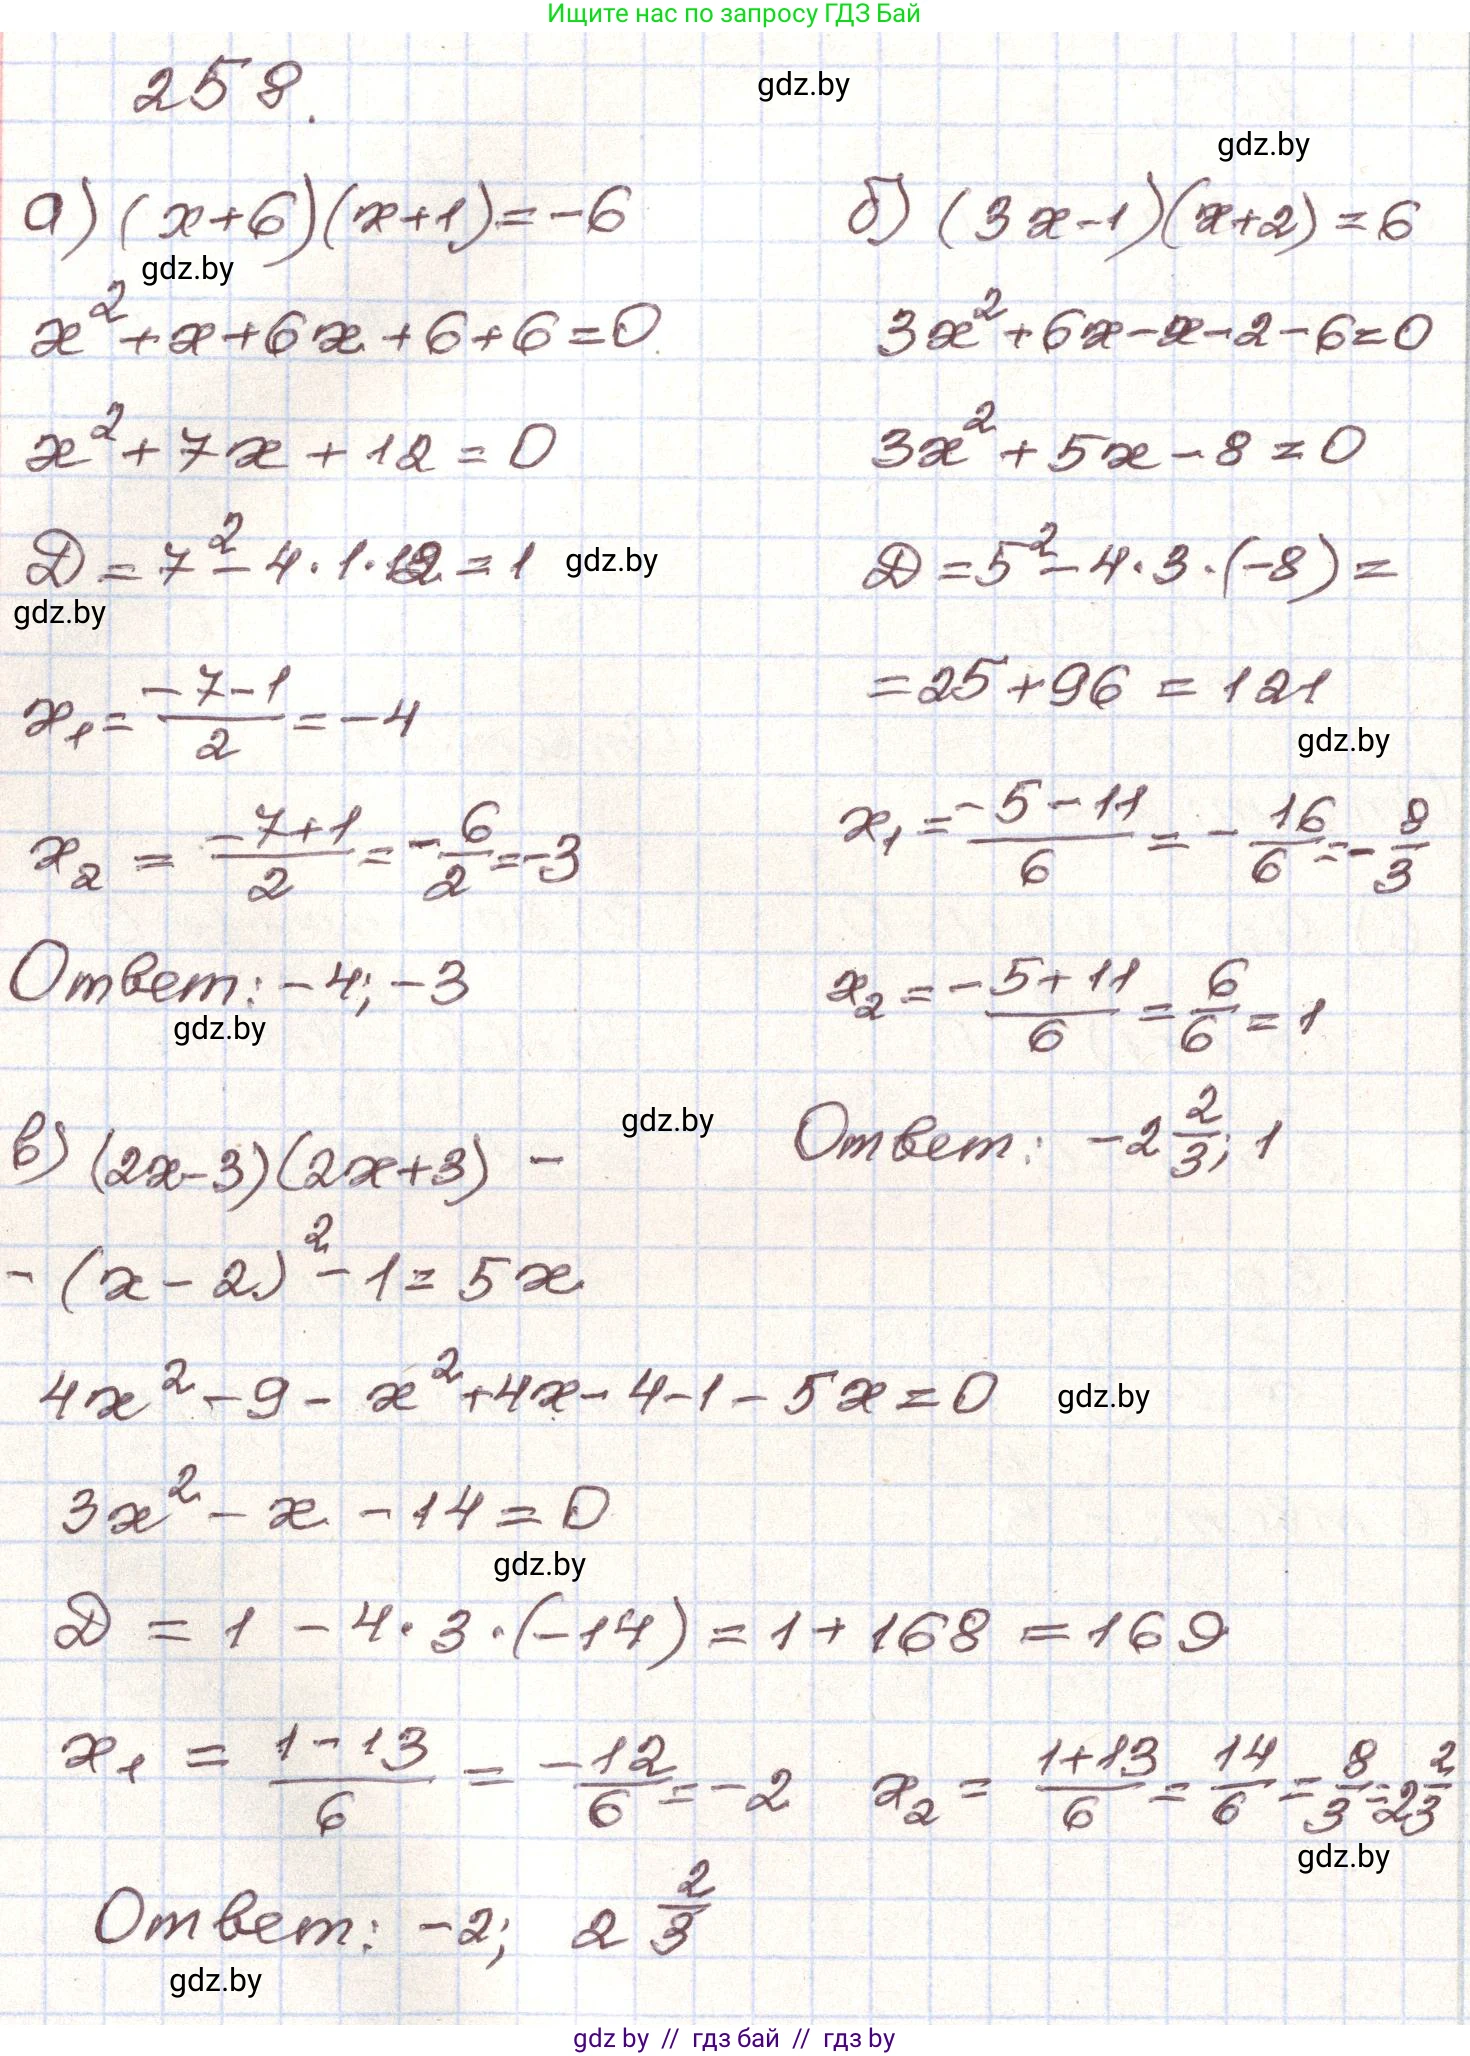 Ищите нас по запросу ГДЗ Бай
258.
gdz.by
gdz.by
а) (x+6)(x+1)=-6
gdz.by
x²+x+6x+6+6=0
x²+7x+12=0
D=7²-4·1·12=1
gdz.by
gdz.by
x₁=(-7-1)/2=-4
x₂=(-7+1)/2=-6/2=-3
Ответ: -4; -3
gdz.by
б) (3x-1)(x+2)=6
3x²+6x-x-2-6=0
3x²+5x-8=0
D=5²-4·3·(-8)=
=25+96=121
gdz.by
x₁=(-5-11)/6=-16/6=-8/3
x₂=(-5+11)/6=6/6=1
Ответ: -2 2/3; 1
в) (2x-3)(2x+3)-
gdz.by
-(x-2)²-1=5x
4x²-9-x²+4x-4-1-5x=0
gdz.by
3x²-x-14=0
gdz.by
D=1-4·3·(-14)=1+168=169
x₁=(1-13)/6=-12/6=-2 x₂=(1+13)/6=14/6=8/3=2 2/3
gdz.by
Ответ: -2; 2 2/3
gdz.by
gdz by // гдз бай // гдз by